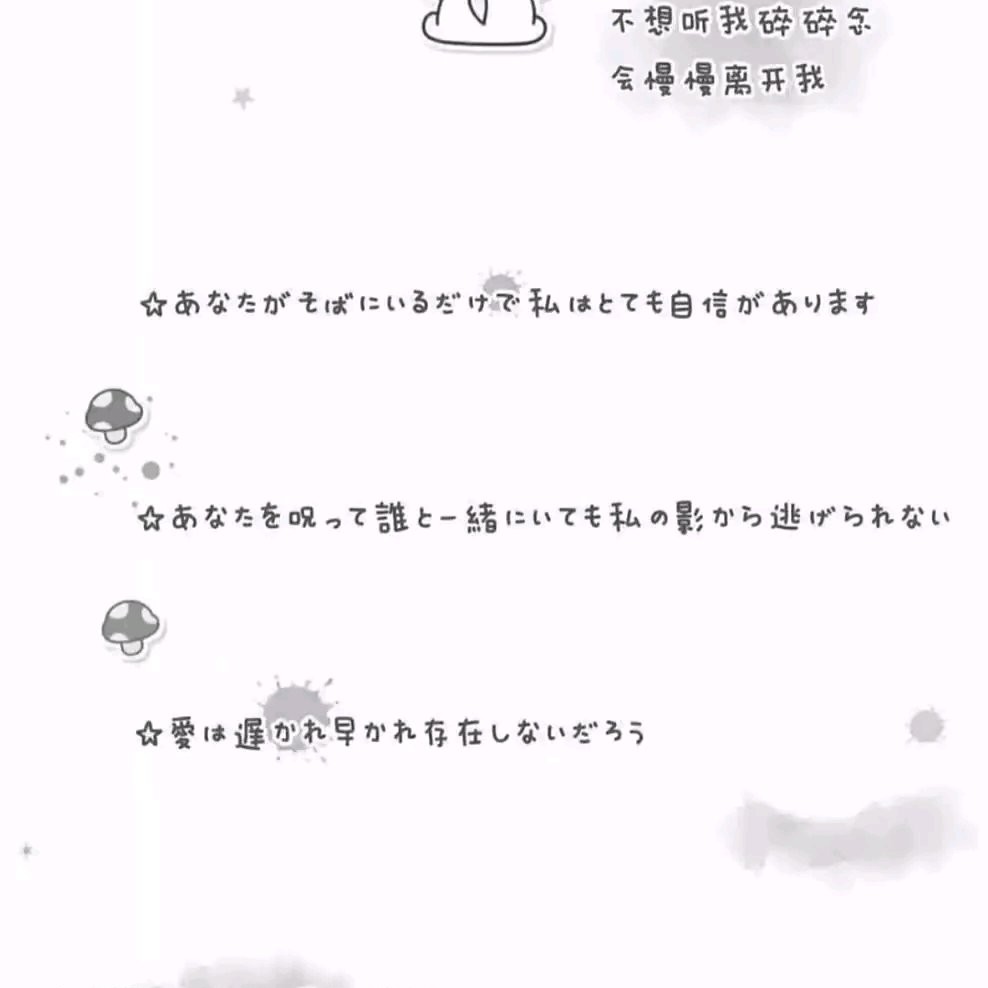 不想听我碎碎念
会慢慢离开我
☆あなたがそばにいるだけで私はとても自信があります
☆あなたを呪って誰と一緒にいても私の影から逃げられない
☆愛は遅かれ早かれ存在しないだろう